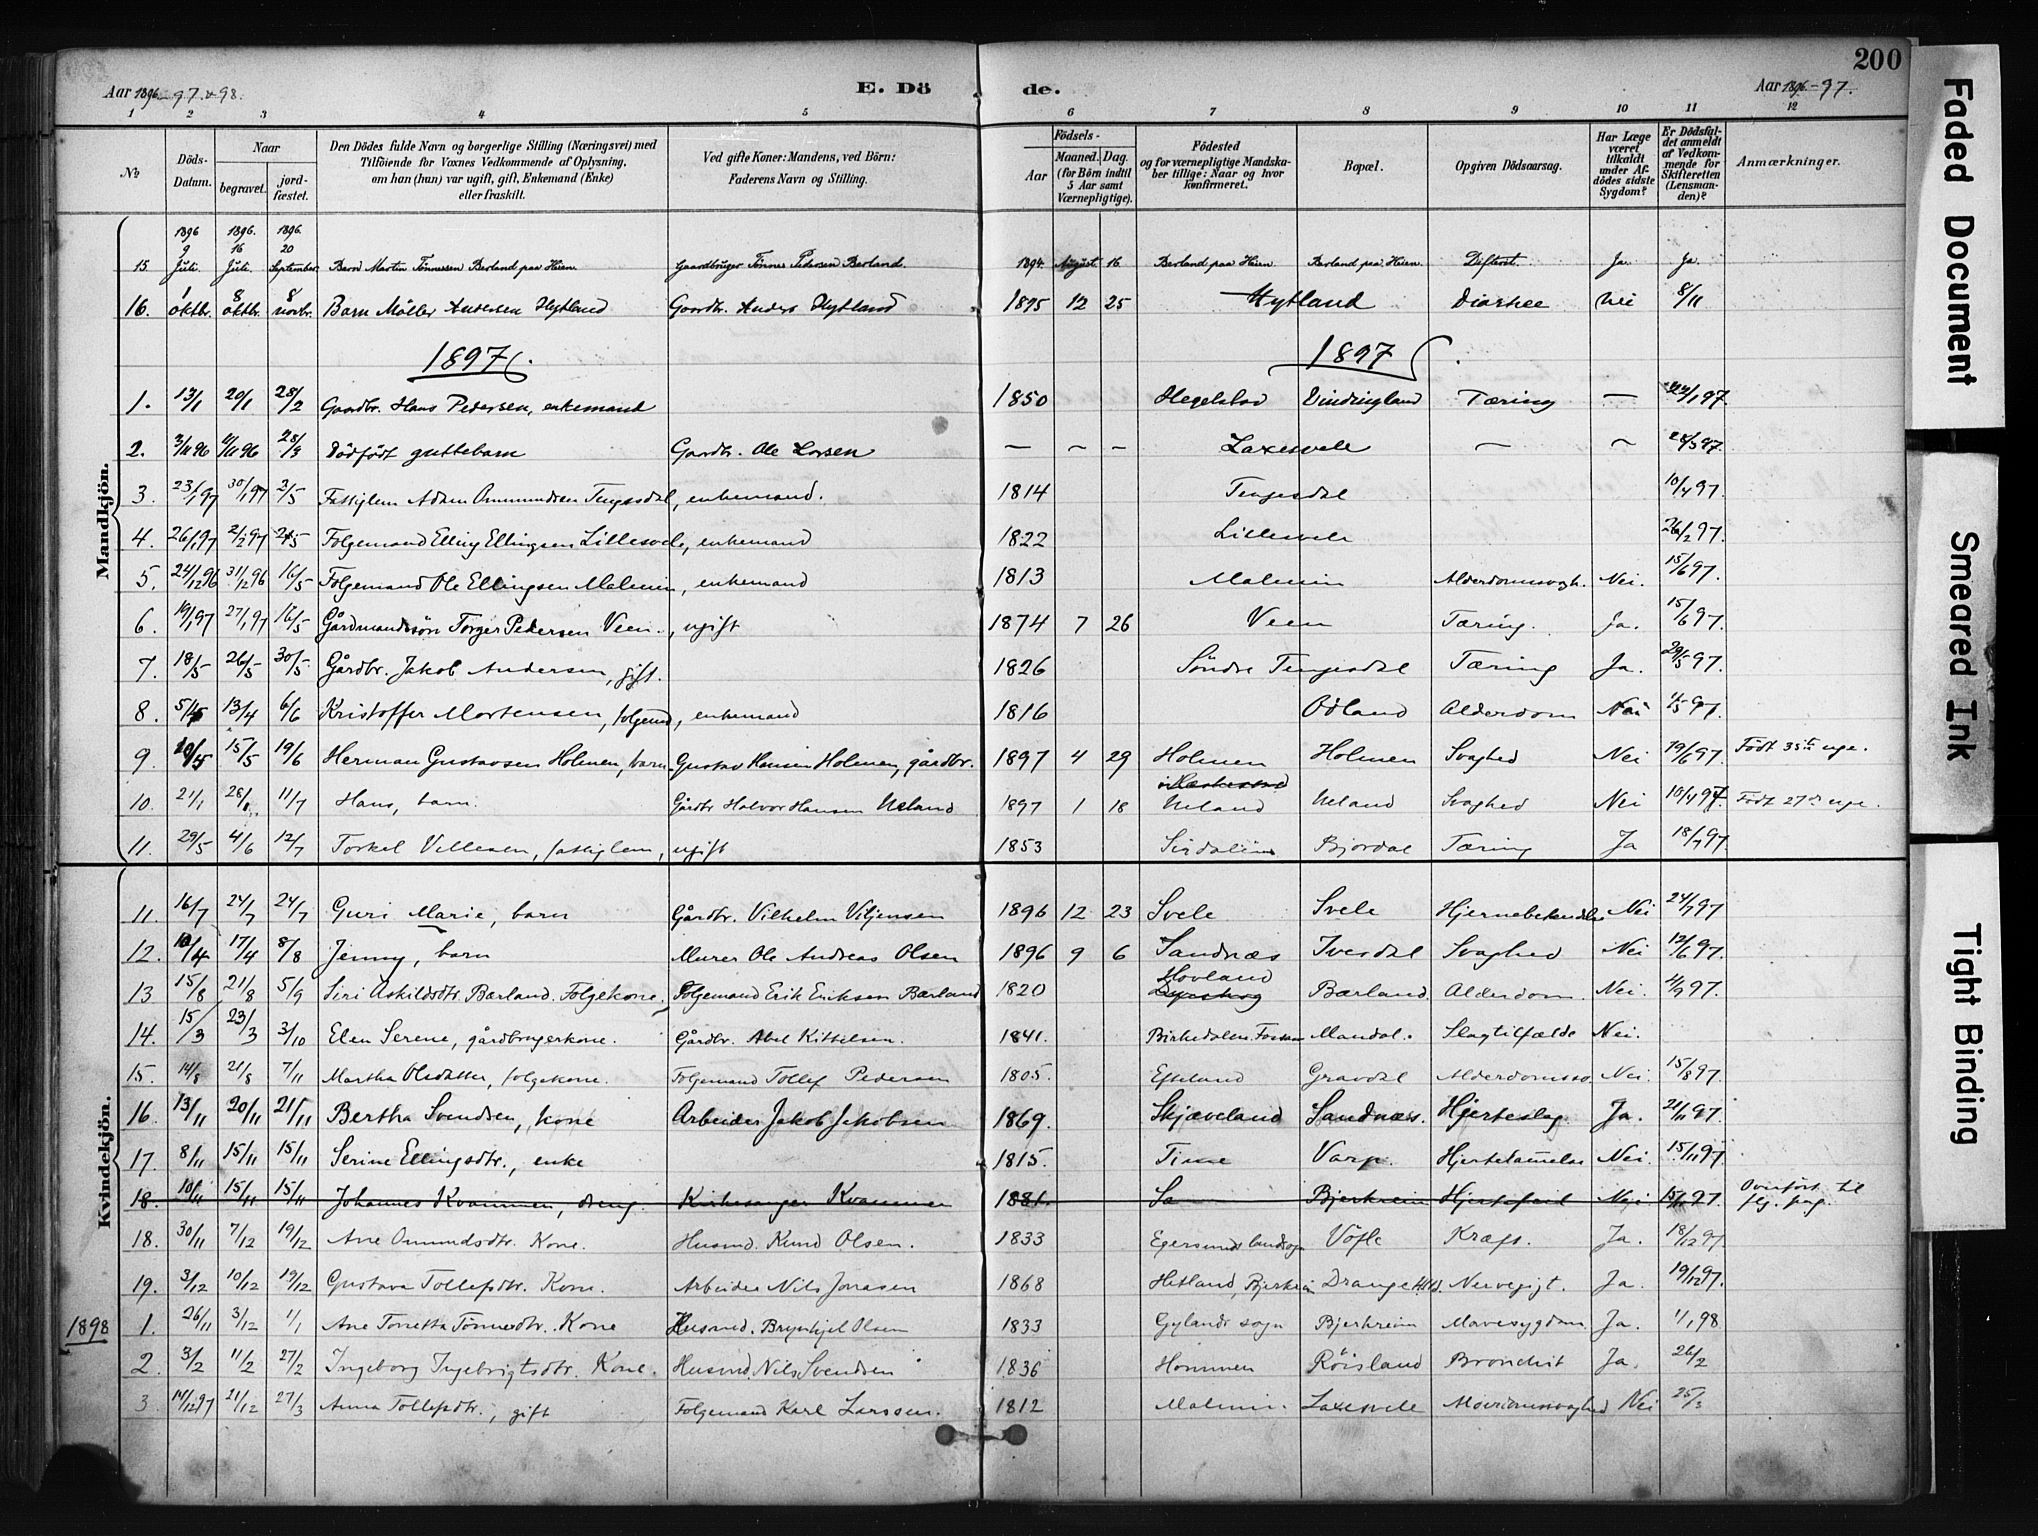 200
Aar 1896-97 & 98.
E. Dö
de.
Aar 1896-97.
1 2 3 4 5 6 7 8 9 10 11 12
№
Döds-Datum.
Naar
begravet.
jord-fæstet.
Den Dödes fulde Navn og borgerlige Stilling (Næringsvei) med
Tilföiende for Voxnes Vedkommende af Oplysning,
om han (hun) var ugift, gift, Enkemand (Enke)
eller fraskilt.
Ved gifte Koner: Mandens, ved Börn:
Faderens Navn og Stilling.
Födsels-
Aar
Maaned. Dag.
(for Börn indtil
5 Aar samt
Værnepligtige).
Födested
og for værnepligtige Mandska-
ber tillige: Naar og hvor
konfirmeret.
Bopæl.
Opgiven Dödsaarsag.
Har Læge
været
tilkaldt
under Af-
dödes sidste
Sygdom?
Er Dödsfal-
det anmeldt
af Vedkom-
mende for
Skifteretten
(Lensman-
den)?
Anmærkninger.
Mandkjön.
1896 1896. 1896.
9 16 20
15. Juli. Juli. September Barn Martin Tönnessen Berland paa Heien. Gaardbruger Tönnes Pedersen Berland. 1894. August. 16 Berland paa Heien Berland paa Heien. Difterit. Ja. Ja.
16. 1 oktbr. 8 oktbr. 8 novbr. Barn Möller Andersen Hytland Gaardbr. Anders Hytland 1895 12 25 Hytland Diarhee Nei 8/11
1897. 1897.
1. 13/1 20/1 28/2 Gaardbr. Hans Pedersen, enkemand 1850 Hegelstad Vindingland Tæring — 22/1 97
2. 3/11 96 4/11 96 28/3 Dödfödt guttebarn Gaardbr. Ole Larsen — — — Laxesvele — — 28/3 97
3. 23/1 97 30/1 97 2/5 Fattiglem Adam Ommundsen Tengesdal, enkemand. 1814 Tengesdal 10/4 97.
4. 26/1 97 2/2 97 2/5 Folgemand Elling Ellingsen Lillesvele, enkemand 1822 Lillesvele 26/2 97.
5. 24/12 96 31/12 96 16/5 Folgemand Ole Ellingsen Malmin, enkemand 1813 Malmin Alderdomssvagh. Nei. 15/6 97.
6. 19/1 97 27/1 97 16/5 Gårdmandssön Torger Pedersen Veen, ugift 1874 7 26 Veen Tæring. Ja. 15/6 97.
7. 18/5 26/5 30/5 Gårdbr. Jakob Andersen, gift. 1826 Söndre Tengesdal Tæring Ja. 29/5 97.
8. 5/4 13/4 6/6 Kristoffer Mortensen, folgemd, enkemand 1816 Odland Alderdom Nei 4/5 97.
9. 10/5 15/5 19/6 Herman Gustavsen Holmen, barn Gustav Hansen Holmen, gårdbr. 1897 4 29 Holmen Holmen Svaghed Nei 19/6 97. Födt 35te uge.
10. 21/1 28/1 11/7 Hans, barn. Gårdbr Halvor Hansen Neland 1897 1 18 Neland Neland Svaghed Nei 10/4 97. Födt 27de uge.
11. 29/5 4/6 12/7 Torkel Villesen, fattiglem, ugift 1853 Sirdalen Bjordal Tæring Ja 18/7 97
Kvindekjön.
11. 16/7 24/7 24/7 Guri Marie, barn Gårdbr. Vilhelm Viljensen 1896 12 23 Svele Svele Hjernebetændelse Nei 24/7 97
12. 10/4 17/4 8/8 Jenny, barn Murer Ole Andreas Olsen 1896 9 6 Sandnæs Ivesdal Svaghed Nei 12/6 97.
13 15/8 21/8 5/9 Siri Askildsdtr. Bærland. Folgekone. Folgemand Erik Eriksen Bærland 1820 Hovland Bærland. Alderdom. Nei. 4/9 97.
14. 15/3 23/3 3/10 Elen Serene, gårdbrugerkone. Gårdbr. Abel Kittelsen. 1841. Birkedalen. Mandal. Slagtilfælde Nei.
15. 14/8 21/8 7/11 Martha Olsdatter, folgekone. Folgemand Tollef Pedersen 1805. Efteland Gravdal Alderdomssv. Nei. 15/8 97.
16. 13/11 20/11 21/11 Bertha Svendsen, kone Arbeider Jakob Jakobsen 1869. Skjæveland Sandnæs. Hjerteslag. Ja. 21/11 97.
17. 8/11 15/11 15/11 Serine Ellingsdtr., enke 1815. Time Varp. Hjertelamelse Nei. 15/11 97
18. 10/11 15/11 15/11 Johannes Kvammen, dreng. Kirkesanger Kvammen 1881. Sa Bjerkreim Hjertefeil Nei. 15/11 97. Overfört til flg. pag.
18. 30/11 7/12 19/12 Ane Ommundsdtr. Kone. Husmd. Knud Olsen. 1833 Egersunds landsogn Vöfle Kræft. Ja. 18/12 97.
19. 3/12 10/12 19/12 Gustava Tollefsdtr. Kone. Arbeider Nils Jonasen 1868 Hetland, Bjerkreim Drange Nervegigt. Ja. 19/12 97.
1898 1. 26/11 3/12 1/1 Ane Tonetta Tönnesdtr. Kone Husmd. Brynhjel Olsen 1833 Gylands sogn Bjerkreim Mavesygdom. Ja. 1/1 98
2. 3/2 11/2 27/2 Ingeborg Ingebrigtsdtr. Kone. Husmd. Nils Svendsen 1836 Hommen Röisland Bronchit Ja. 26/2
3. 14/12 97 21/12 27/3 Anna Tollefsdtr., gift Folgemand Karl Larssen. 1812 Malmin. Laxesvele Nei 25/3
Faded Document
Smeared Ink
Tight Binding